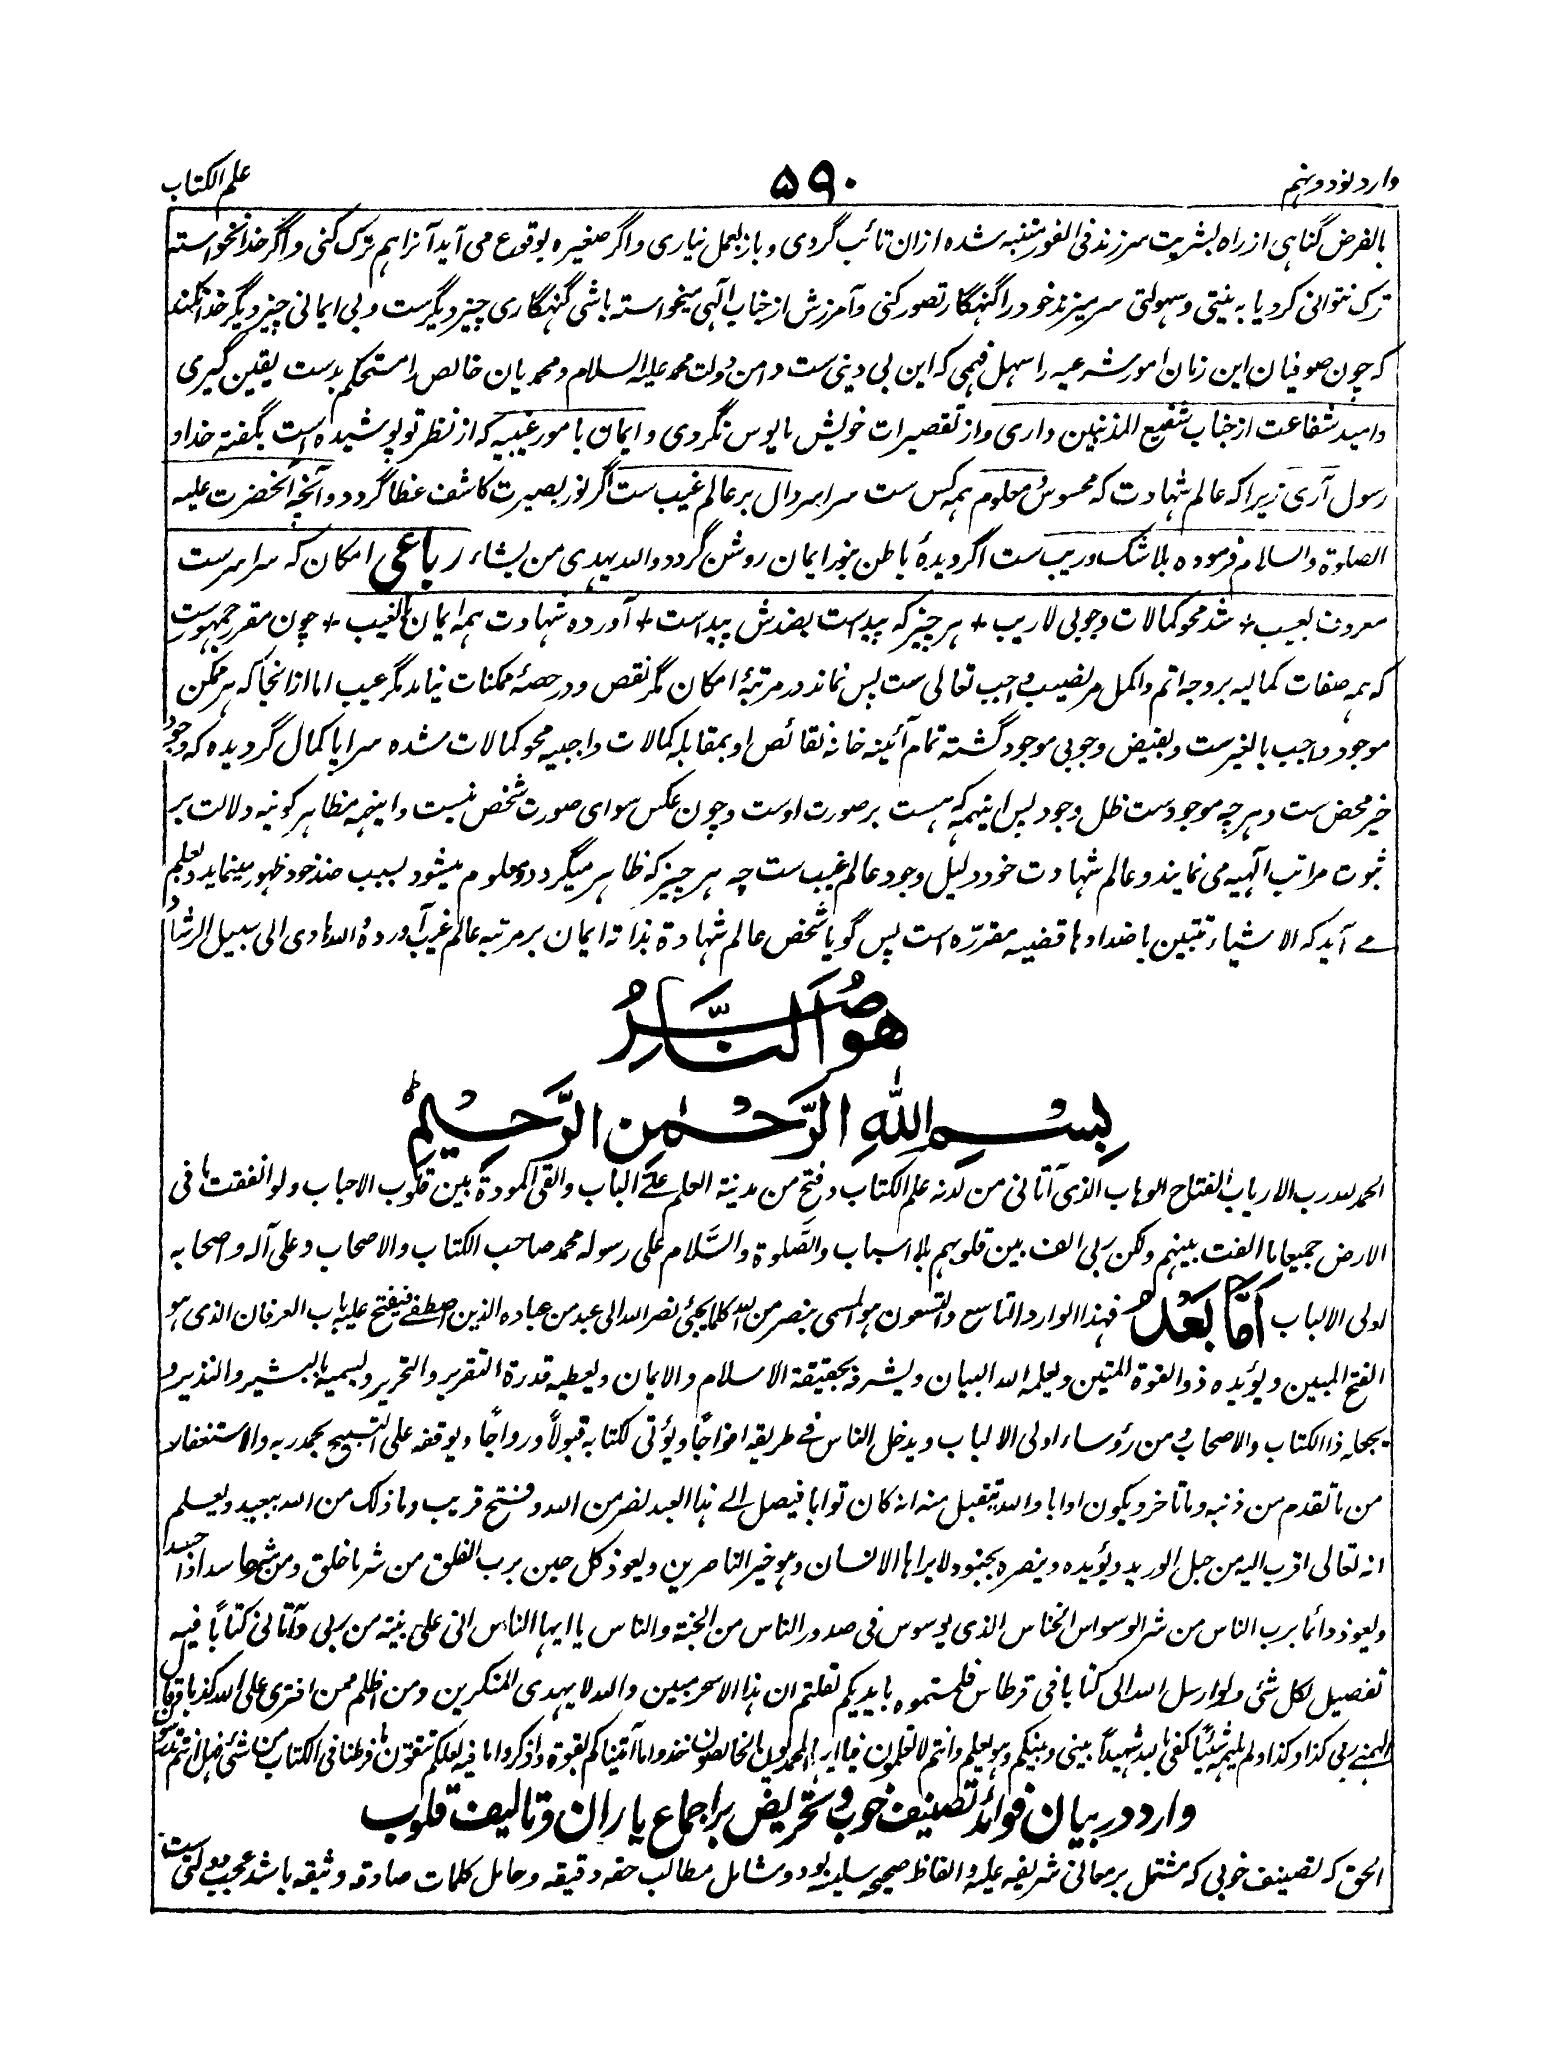 وارد نود و نهم
۵۹۰
علم الکتاب
بالفرض گناہی از راہ بشریت سرزند فی الفور متنبہ شدہ ازان تائب گردی و باز بعمل نیاری و اگر صغیرہ بوقوع می آید آنرا ہم ترک کنی و اگر خدانخواستہ
ترک نتوانی کرد یا بہ نیتی و سہولتی سر میزند خود را گنہگار تصور کنی و آمرزش از جناب الٰہی میخواستہ باشی گنہگاری چیز دیگرست و بی ایمانی چیز دیگر خدا نکند
کہ چون صوفیان این زمان امور شرعیہ را سہل فہمی کہ این بی دینی ست دامن دولت محمد علیہ السلام و محمدیان خالص را مستحکم بدست یقین گیری
و امید شفاعت از جناب شفیع المذنبین داری و از تقصیرات خویش مایوس نگردی و ایمان بامور غیبیہ کہ از نظر تو پوشیدہ است بگفتہ خدا و
رسول آری زیرا کہ عالم شہادت کہ محسوس و معلوم ہمہ کس ست سراسر دال بر عالم غیب ست اگر نور بصیرت کاشف غطا گردد و آنچہ آنحضرت علیہ
الصلوٰة والسلام فرمودہ بلاشک و ریب ست اگر دیدۂ باطن بنور ایمان روشن گردد واللہ یہدی من یشاء رباعی امکان کہ سراسرست
معروف بعیب + شد محو کمالات وجوبی لاریب + ہر چیز کہ پیداست بضدش پیداست + آوردہ شہادت ہمہ ایمان بالغیب + چون مقرر جمہورست
کہ ہمہ صفات کمالیہ بر وجہ اتم و اکمل مر نصیب واجب تعالی ست پس نماند در مرتبۂ امکان مگر نقص و در حصۂ ممکنات نیامد مگر عیب اما از انجا کہ ہر ممکن
موجود واجب بالغیر ست و بفیض وجوبی موجود گشتہ تمام آئینہ خانہ نقائص او بمقابلہ کمالات واجبیہ محو کمالات شدہ سراپا کمال گردیدہ کہ وجود
خیر محض ست و ہرچہ موجودست ظل وجود پس اینہمہ کہ ہست بر صورت اوست و چون عکس سوای صورت شخص نیست و اینہمہ مظاہر کونیہ دلالت بر
ثبوت مراتب الٰہیہ می نمایند و عالم شہادت خود دلیل وجود عالم غیب ست چہ ہر چیز کہ ظاہر میگردد و معلوم میشود بسبب ضد خود ظہور مینماید و بعلم
مے آید کہ الاشیاء تتبین باضدادہا قضیہ مقررہ است پس گویا شخص عالم شہادة بذاتہ ایمان بر مرتبہ عالم غیب آوردہ اللہ ہادی الی سبیل الرشاد
هُوَ النَّاصِرُ
بِسْمِ اللهِ الرَّحْمٰنِ الرَّحِيْمِ
الحمد للہ رب الارباب الفتاح الوہاب الذی آتانی من لدنہ علم الکتاب و فتح من مدینۃ العلم علی الباب والقی المودة بین قلوب الاحباب و لو انفقت ما فی
الارض جمیعا ما الفت بینہم ولکن ربی الف بین قلوبہم بلا اسباب والصَّلوة والسَّلام علی رسولہ محمد صاحب الکتاب والاصحاب و علی آلہ و اصحابہ
اولی الالباب اَمَّا بَعْدُ فہذا الوارد التاسع والتسعون ہو المسمی بنصر من اللہ کلما یجئ نصر اللہ الی عبد من عبادہ الذین اصطفے فیفتح علیہ باب العرفان الذی ہو
الفتح المبین و یؤیدہ ذو القوة المتین و یعلمہ اللہ البیان و یشرفہ بحقیقۃ الاسلام والایمان و یعطیہ قدرة التقریر والتحریر و یسمیہ بالبشیر والنذیر و
یجعلہ ذا الکتاب والاصحاب من رؤساء اولی الالباب و یدخل الناس فے طریقہ افواجًا و یؤتی لکتابہ قبولًا و رواجًا و یوقفہ علی التسبیح بحمد ربہ والاستغفار
من ما تقدم من ذنبہ و ما تاخر و یکون اوابا واللہ یتقبل منہ انہ کان توابا فیصل الے ہذا العبد نصر من اللہ و فتح قریب و ما ذلک من اللہ ببعید و یعلم
انہ تعالی اقرب الیہ من حبل الورید و یؤیدہ و ینصرہ بجنود لا یراہا الانسان و ہو خیر الناصرین و یعوذ کل حین برب الفلق من شر ما خلق و من شر حاسد اذا حسد
و یعوذ دائما برب الناس من شر الوسواس الخناس الذی یوسوس فی صدور الناس من الجنۃ والناس یا ایہا الناس انی علی بینۃ من ربی و آتانی کتابًا فیہ
تفصیل لکل شئی و لو ارسل اللہ الی کتابا فی قرطاس فلمستموہ بایدیکم لقلتم ان ہذا الا سحر مبین واللہ لا یہدی المنکرین و من اظلم ممن افتری علی اللہ کذبا و قال
الہمنی ربی کذا و کذا و لم یلہمہ شیئًا کفی باللہ شہیدًا بینی و بینکم و ہو یعلم و انتم لا تعلمون فیا ایہا المحمدیون الخالصون خذوا ما آتیناکم بقوة واذکروا ما فیہ لعلکم تتقون ما فرطنا فی الکتاب من شئی فہل انتم
وارد در بیان فوائد تصنیف خوب و تحریض بر اجماع یاران و تالیف قلوب
الحق کہ تصنیف خوبی کہ مشتمل بر معانی شریفہ علیہ و الفاظ صحیحہ سلیسہ بود و شامل مطالب حقہ دقیقہ و حامل کلمات صادقہ وثیقہ باشد عجب دولتی ست